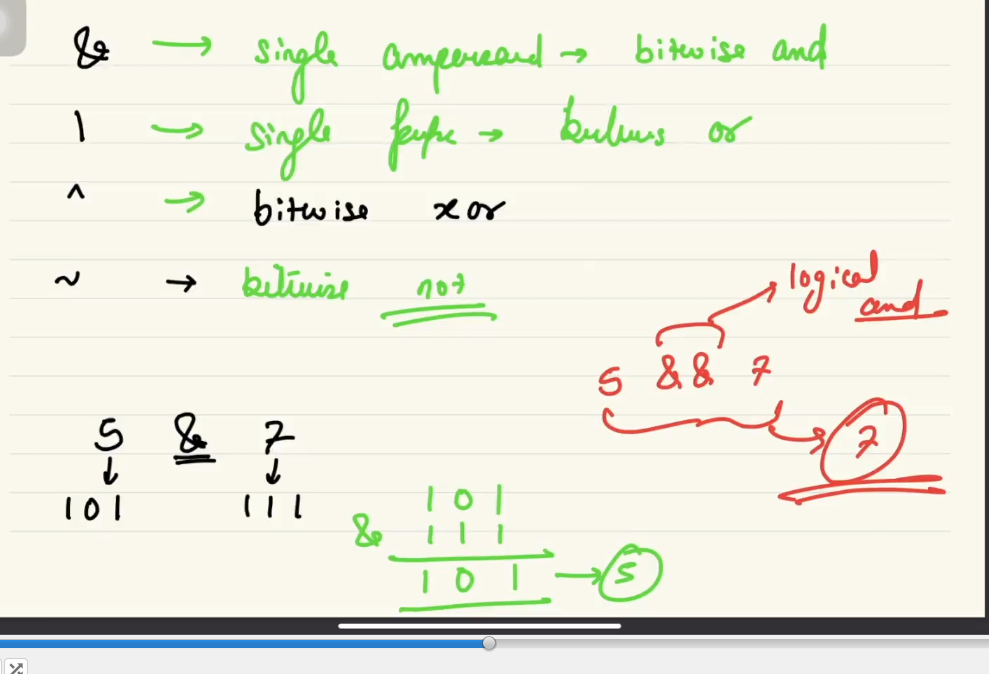 & → single ampersand → bitwise and
| → single → or
^ → bitwise xor
~ → bitwise not
logical and
5 && 7
7
5 & 7
101 111
101
& 111
101 → 5